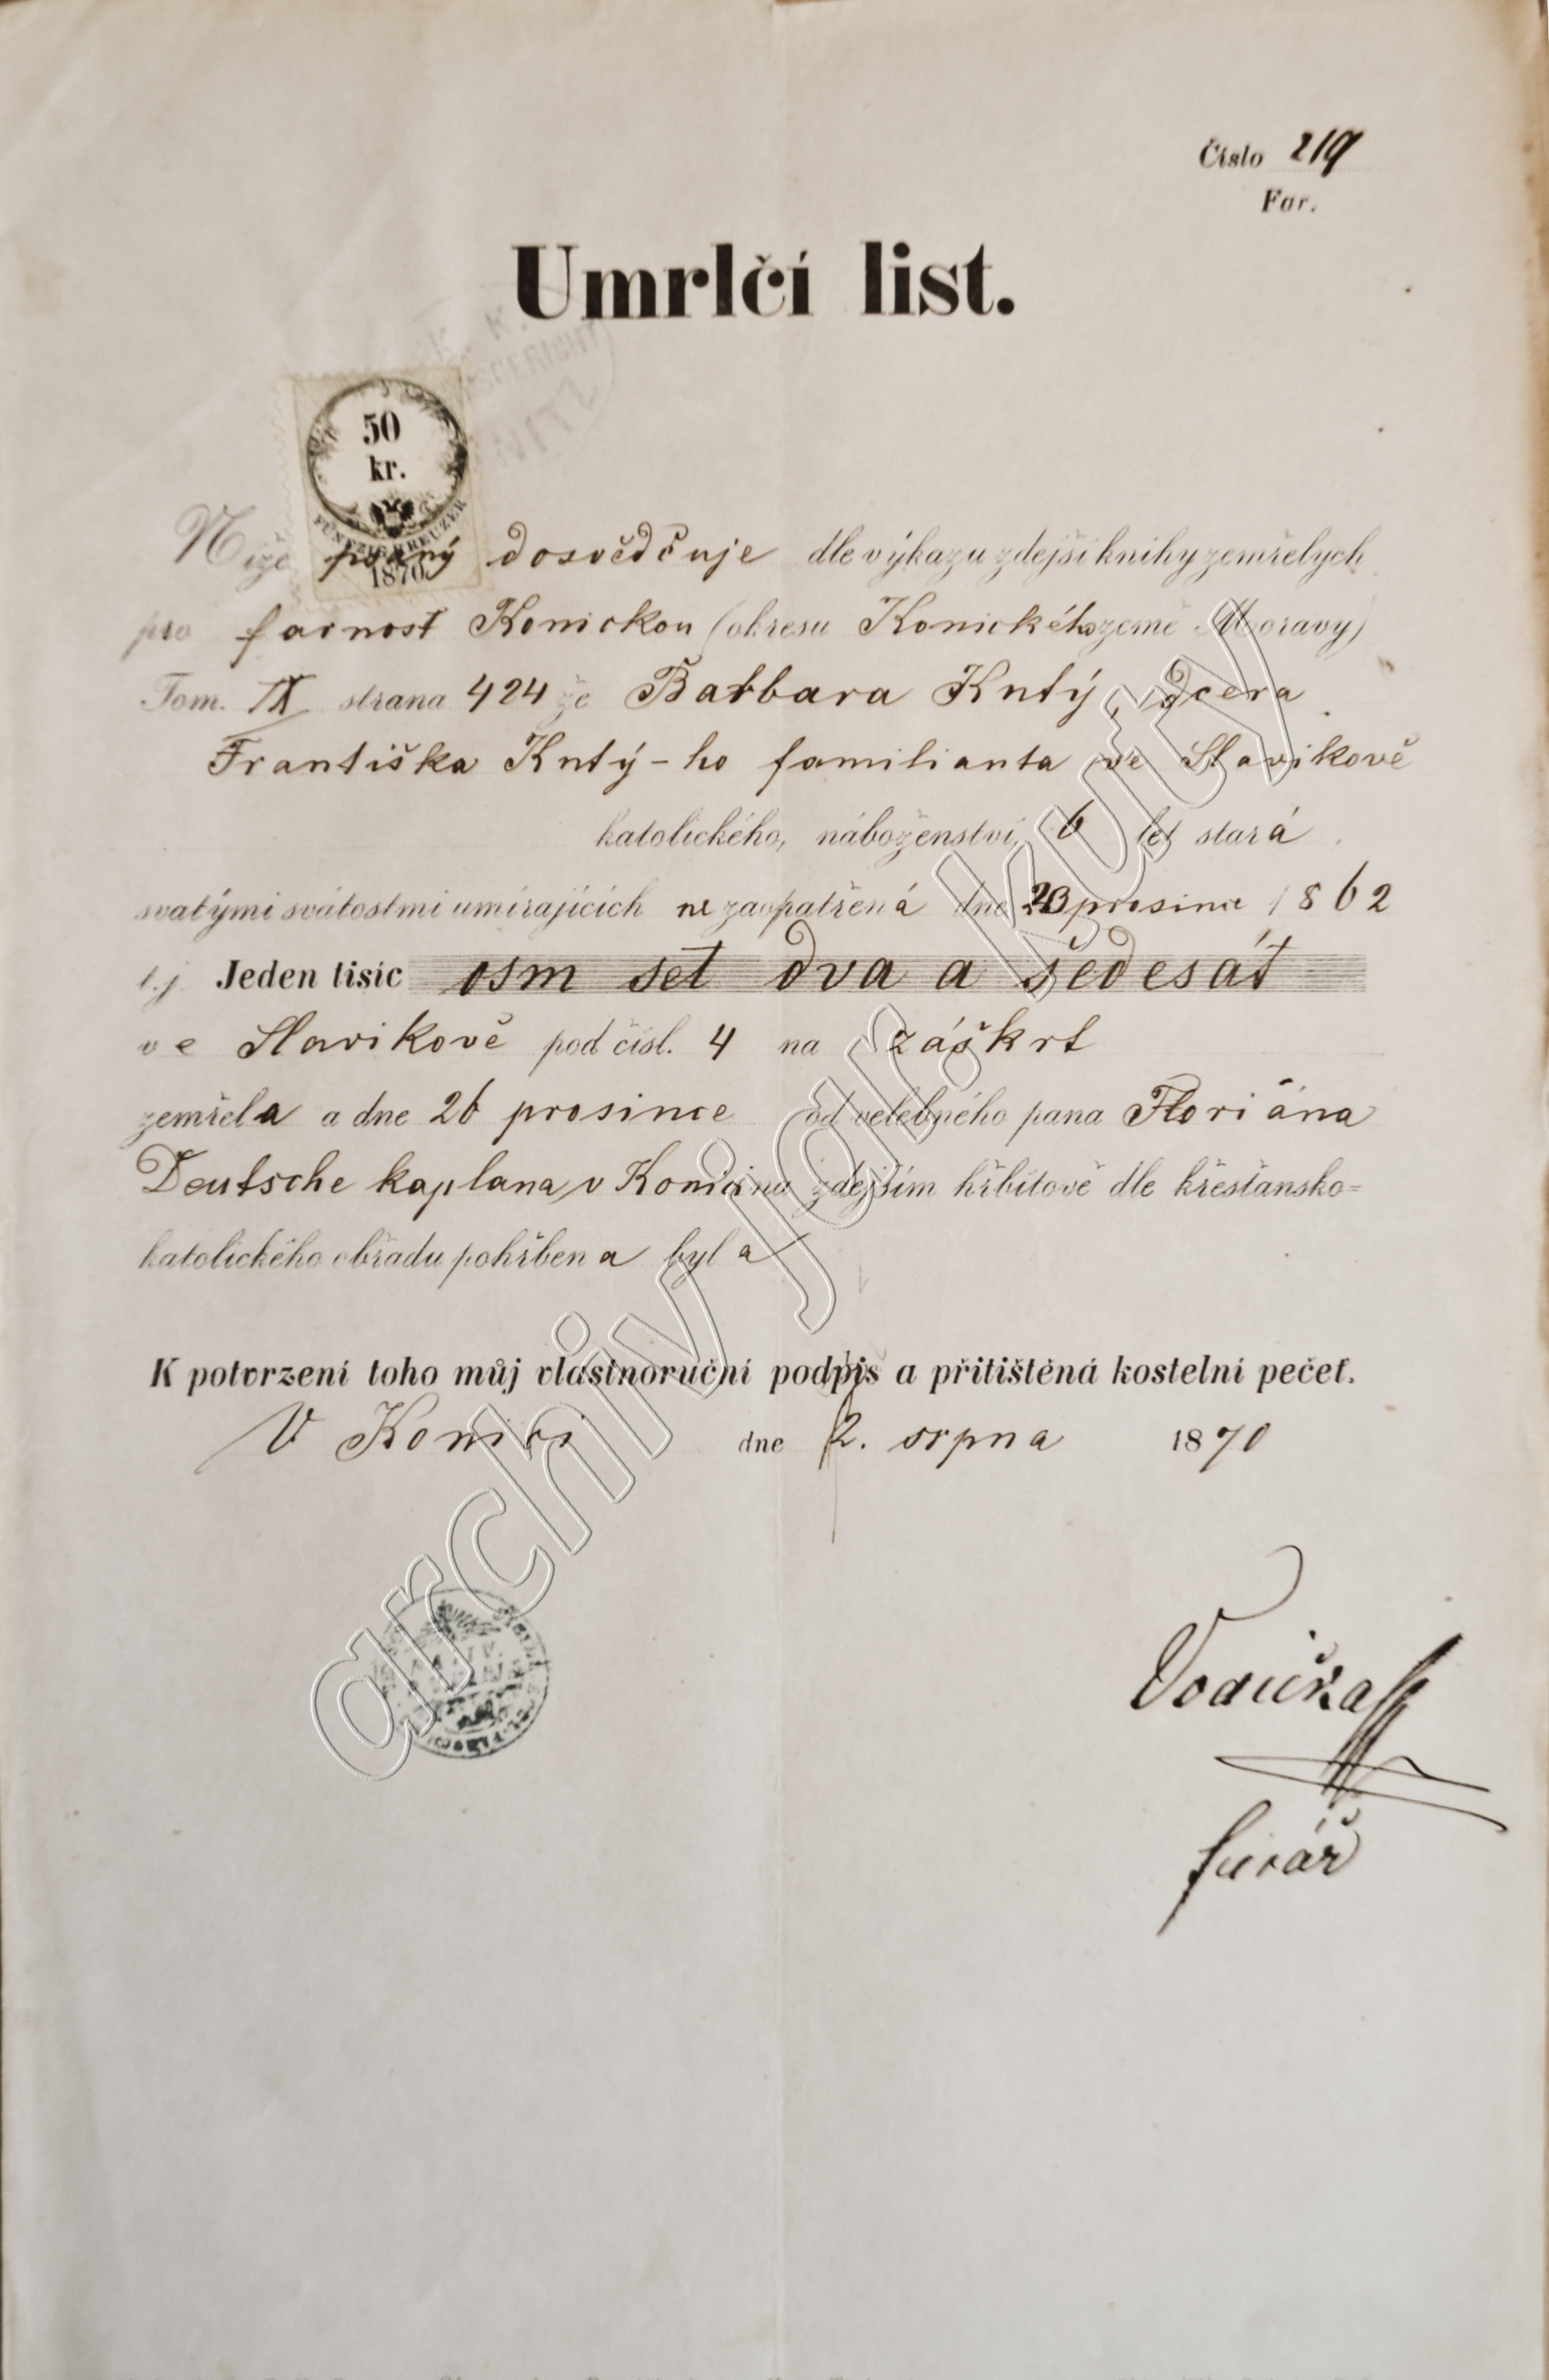 Číslo 219
Far.
Umrlčí list.
50
kr.
FÜNFZIG KREUZER
1870
Níže psaný dosvědčuje dle výkazu zdejší knihy zemřelych
pro farnosť Konickou (okresu Konického země Moravy)
Tom. IX strana 424 že Barbara Kutý, dcera
Františka Kutý-ho familianta ve Slavikově
katolického, náboženství, 6 let stará
svatými svátostmi umírajících nezaopatřená dne 23 prosince 1862
t.j. Jeden tisíc osm set dva a šedesáť
ve Slavikově pod čísl. 4 na záškrt
zemřela a dne 26 prosince od velebného pana Floriána
Deutsche kaplana v Konici na zdejším hřbitově dle křesťansko=
katolického obřadu pohřbena byla
K potvrzení toho můj vlastnoruční podpis a přitištěná kostelní pečeť.
V Konici dne 2. srpna 1870
Vodička
farář
archiv jar. kutý